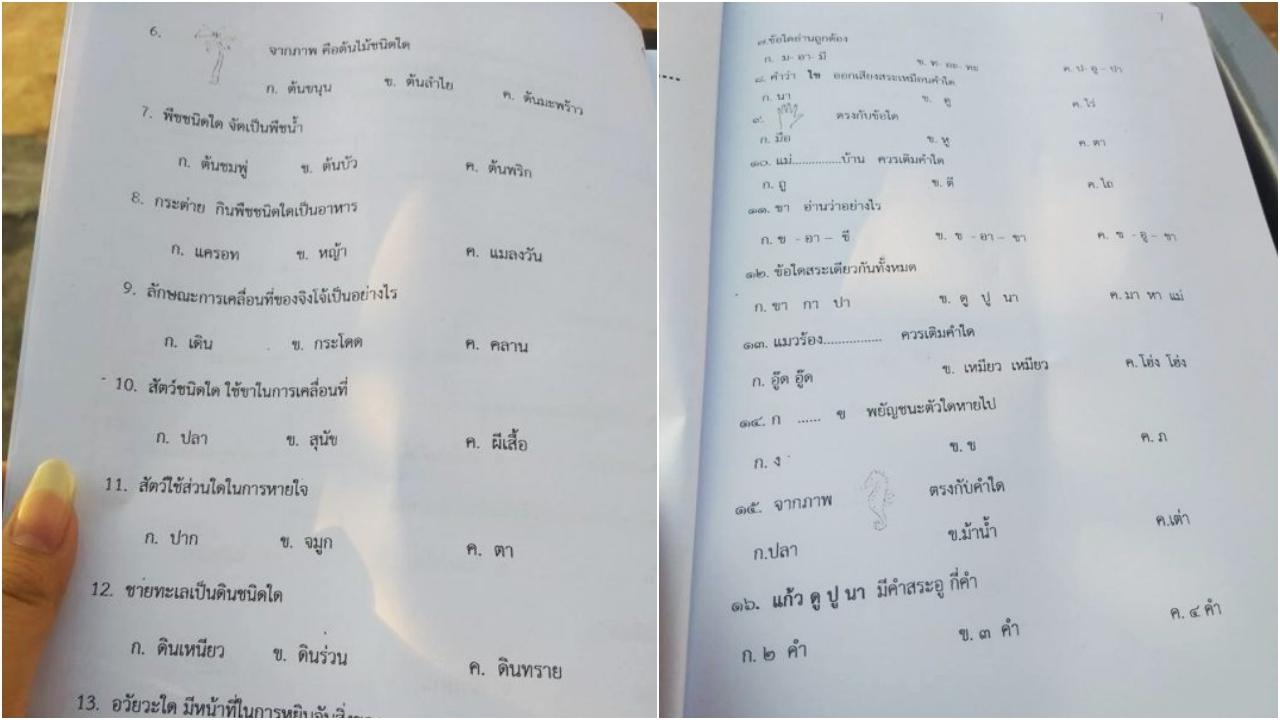 6. จากภาพ คือต้นไม้ชนิดใด
ก. ต้นขนุน ข. ต้นลำไย ค. ต้นมะพร้าว
7. พืชชนิดใด จัดเป็นพืชน้ำ
ก. ต้นชมพู่ ข. ต้นบัว ค. ต้นพริก
8. กระต่าย กินพืชชนิดใดเป็นอาหาร
ก. แครอท ข. หญ้า ค. แมลงวัน
9. ลักษณะการเคลื่อนที่ของจิงโจ้เป็นอย่างไร
ก. เดิน ข. กระโดด ค. คลาน
10. สัตว์ชนิดใด ใช้ขาในการเคลื่อนที่
ก. ปลา ข. สุนัข ค. ผีเสื้อ
11. สัตว์ใช้ส่วนใดในการหายใจ
ก. ปาก ข. จมูก ค. ตา
12. ชายทะเลเป็นดินชนิดใด
ก. ดินเหนียว ข. ดินร่วน ค. ดินทราย
13. อวัยวะใด มีหน้าที่ในการหยิบจับ
๗.ข้อใดอ่านถูกต้อง
ก. ม- อา- มี ข. ท- อะ- ทะ ค. ป- อู - ปา
๘. คำว่า ไข ออกเสียงสระเหมือนคำใด
ก. นา ข. ดู ค. ไร่
๙. ตรงกับข้อใด
ก. มือ ข. หู ค. ตา
๑๐. แม่...............บ้าน ควรเติมคำใด
ก. ถู ข. ตี ค. ไถ
๑๑. ขา อ่านว่าอย่างไร
ก. ข - อา – ขี ข. ข - อา – ขา ค. ข - อู – ขา
๑๒. ข้อใดสระเดียวกันทั้งหมด
ก. ขา กา ปา ข. ดู ปู นา ค. มา หา แม่
๑๓. แมวร้อง............... ควรเติมคำใด
ก. อู๊ด อู๊ด ข. เหมียว เหมียว ค. โฮ่ง โฮ่ง
๑๔. ก ...... ข พยัญชนะตัวใดหายไป
ก. ง ข. ข ค. ภ
๑๕. จากภาพ ตรงกับคำใด
ก.ปลา ข.ม้าน้ำ ค.เต่า
๑๖. แก้ว ดู ปู นา มีคำสระอู กี่คำ
ก. ๒ คำ ข. ๓ คำ ค. ๔ คำ